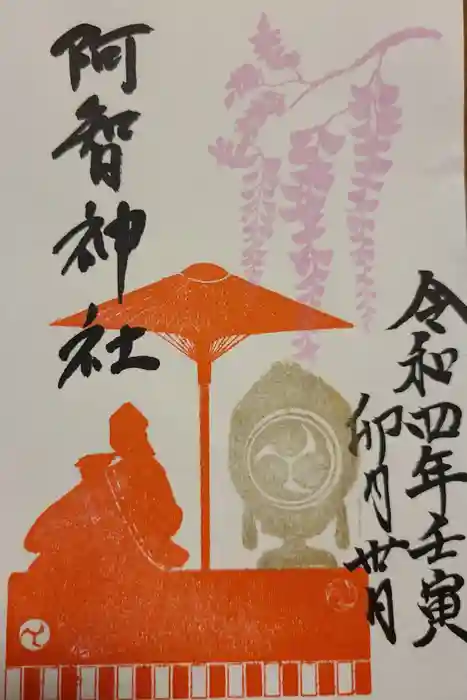 令和四年壬寅
卯月丗日
阿智神社